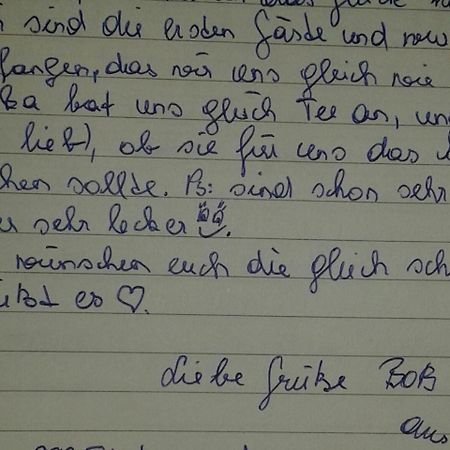 sind die ersten Gäste und
fangen, das wir uns gleich wie
bat uns gleich Tee an, un
lieb), ob sie für uns das
chen sollte. B: sind schon sehr
sehr locker
wünschen euch die gleich sch
es ♡.
Liebe Grüße BOB
aus